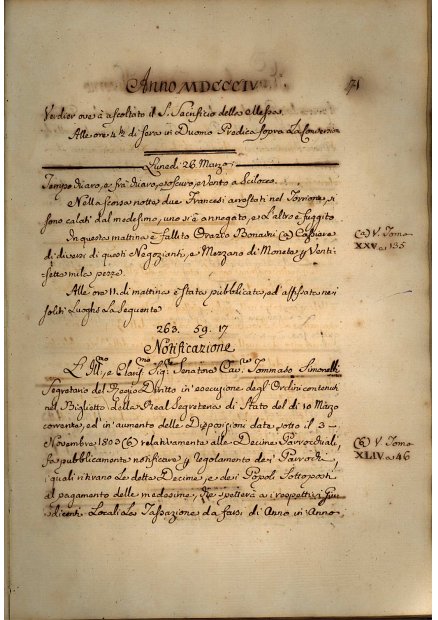 Anno MDCCCIV
71
Verdier ove à ascoltato il S. Sacrificio della Messa.
Alle ore 4½ di sera in Duomo Predica sopra La Conversio
Lunedì 26. Marzo
Tempo diaro, e frà diaro, e oscuro, e Vento a Scilocco.
Nella scorsa notte due Francesi arrestati nel Torrione, si
sono calati dal medesimo, uno si è annegato, e l'altro è fuggito.
In questa mattina è fallito Orazio Bonasni (a) Cassiere
di diversi di questi Negozianti, e Mezzano di Moneta p Venti
sette mila pezze.
(a) V. Tomo
XXV a 135
Alle ore 11. di mattina è stata pubblicata, ed affissata nei
soliti Luoghi La Seguente
263. 59. 17
Notificazione
L'Ill.mo, e Clar.mo Sig.re Senatore Cav.re Tommaso Simonelli
Segretario del Regio Diritto in esecuzione degl'Ordini contenuti
nel Biglietto della Real Segreteria di Stato del dì 10 Marzo
corrente, ed in aumento delle Disposizioni date sotto il 3
Novembre 1803 (b) relativamente alle Decime Parrocchiali,
fa pubblicamente notificare p regolamento dei Parrochi,
quali ritirano le dette Decime, e dei Popoli Sottoposti
al pagamento delle medesime, che spetterà a i respettivi Giu
dicenti Locali La Tassazione da farsi di Anno in Anno
(b) V. Tomo
XLIV a 46